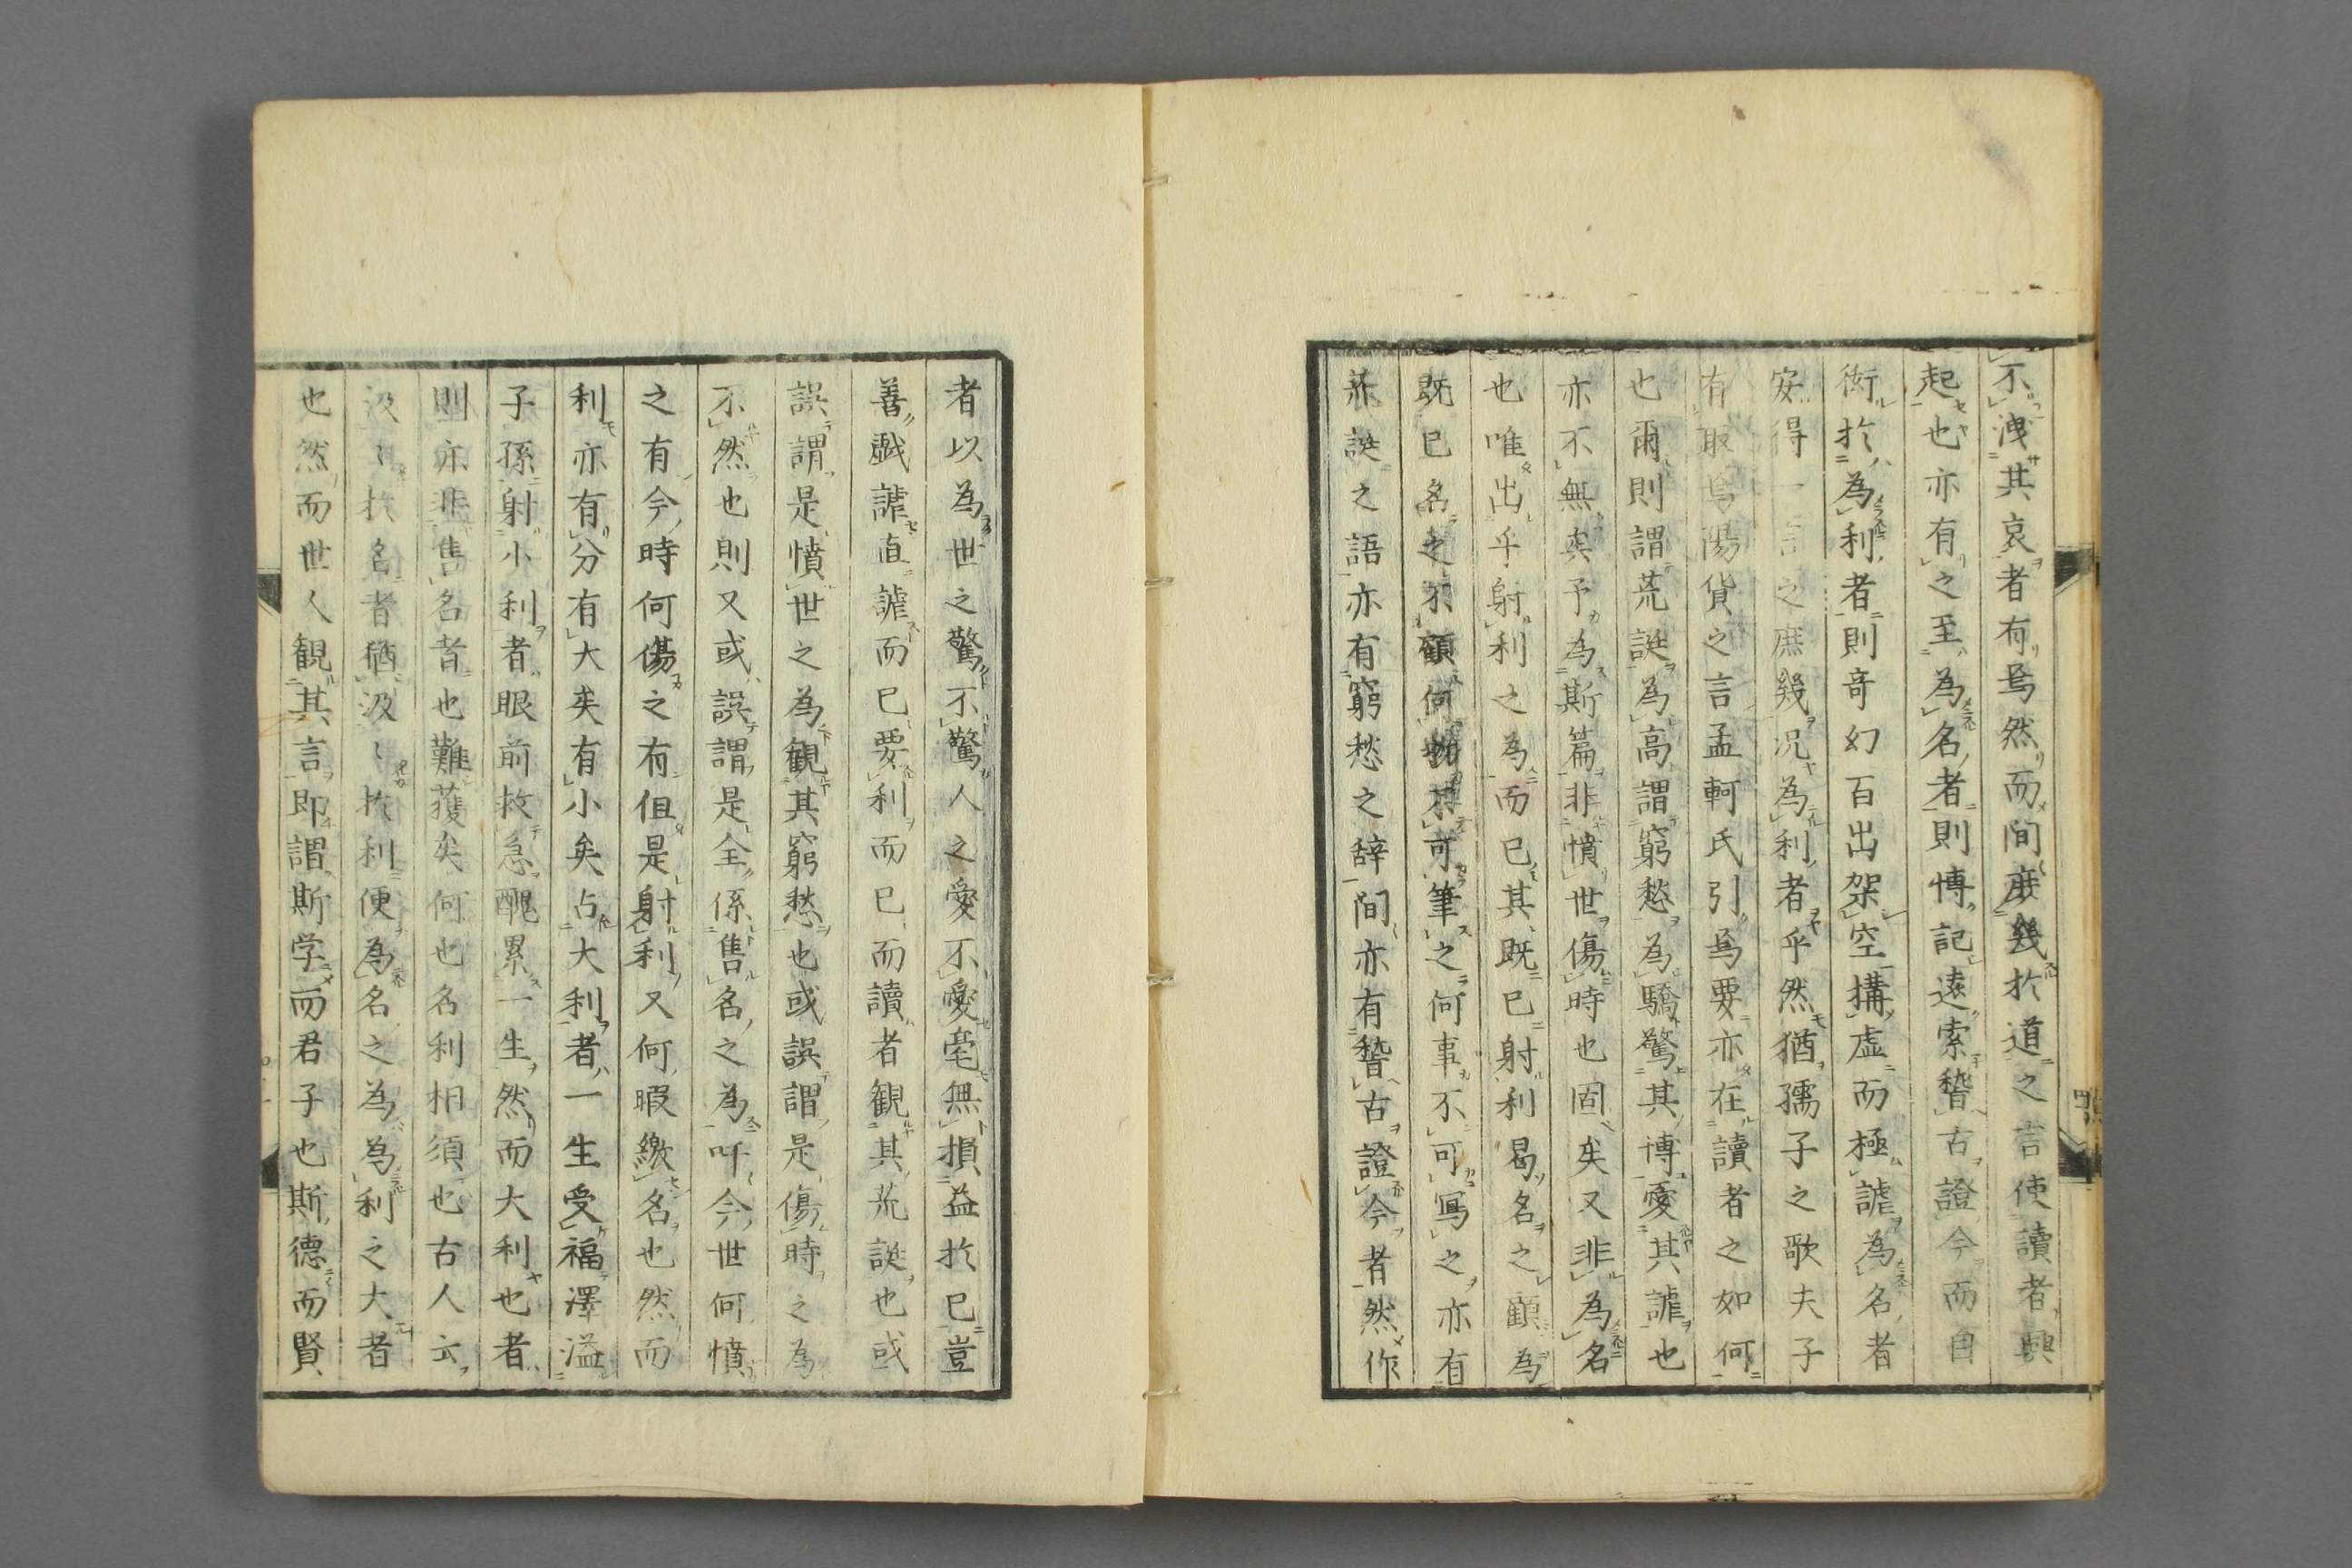 不洩其哀者有焉然而間庶幾於道之言使讀者興
起也亦有之至為名者則博記遠索稽古證今而自
衒於為利者則奇幻百出架空搆虛而極謔為名者
安得一言之庶幾況為利者乎然猶孺子之歌夫子
有取焉陽貨之言孟軻氏引焉要亦在讀者之如何
也爾則謂荒誕為高謂窮愁為驕驚其博愛其謔也
亦不無矣予為斯篇非憤世傷時也固矣又非為名
也唯出乎射利之為而已其既已射利曷名之顧為
既已名之不顧何物不可筆之何事不可寫之亦有
荒誕之語亦有窮愁之辞間亦有稽古證今者然作
者以為世之驚不驚人之愛不愛毫無損益於已豈
善戲謔直謔而已要利而已而讀者観其荒誕也或
誤謂是憤世之為観其窮愁也或誤謂是傷時之為
不然也則又或誤謂是全係售名之為吁今世何憤
之有今時何傷之有但是射利又何暇繳名也然而
利亦有分有大矣有小矣占大利者一生受福澤溢
子孫射小利者眼前救急醜累一生然而大利也者
則亦非售名者也難獲矣何也名利相須也古人云
汲〻於名者猶汲〻於利便為名之為為利之大者
也然而世人観其言即謂斯学而君子也斯德而賢